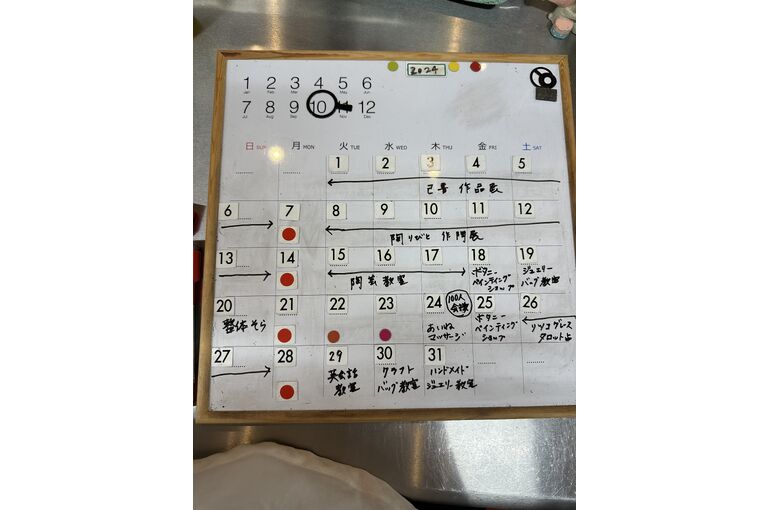 2024
1 2 3 4 5 6
Jan Feb Mar Apr May Jun
7 8 9 10 11 12
Jul Aug Sep Oct Dec
日 SUN 月 MON 火 TUE 水 WED 木 THU 金 FRI 土 SAT
1 2 3 4 5
己書 作品展
6 7 8 9 10 11 12
作陶展
13 14 15 16 17 18 19
陶芸教室
ボタニー
ペインティング
ショップ
ジュエリー
バッグ教室
20 21 22 23 24 100人 25 26
会議
整体そら
あいね
マッサージ
ボタニー
ペインティング
ショップ
リソコグレス
タロット占
27 28 29 30 31
英会話
教室
クラフト
バッグ教室
ハンドメイド
ジュエリー教室